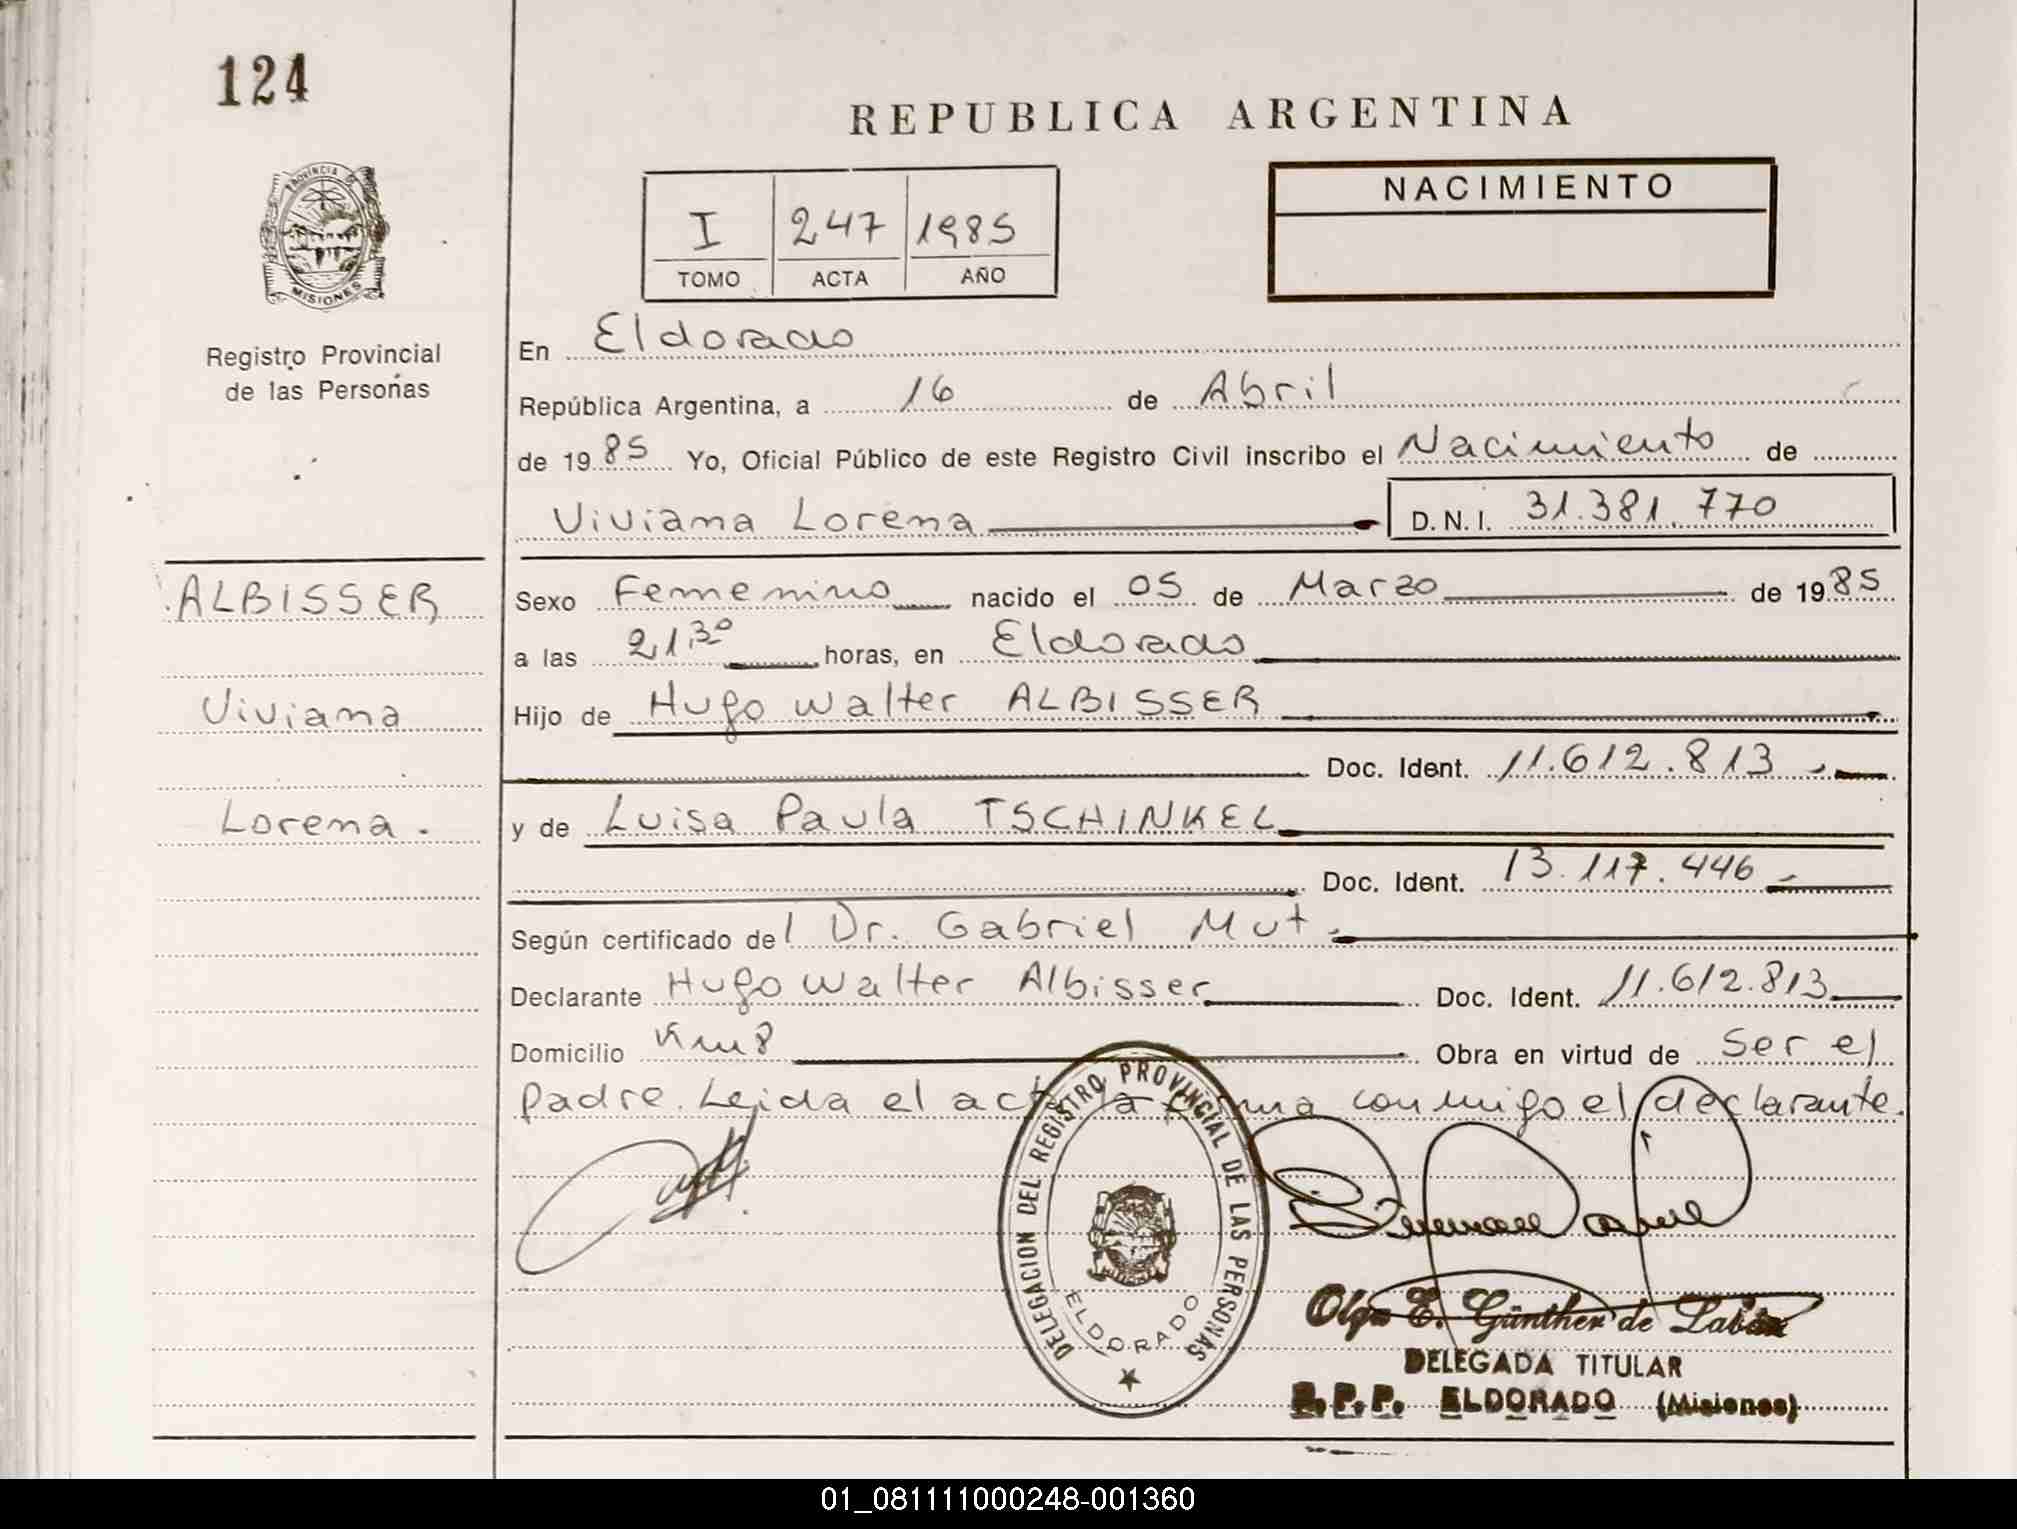 124
REPUBLICA ARGENTINA
PROVINCIA DE
MISIONES
Registro Provincial
de las Personas
I 247 1985
TOMO ACTA AÑO
NACIMIENTO
En Eldorado
República Argentina, a 16 de Abril
de 1985 Yo, Oficial Público de este Registro Civil inscribo el Nacimiento de
Viviana Lorena D. N. I. 31.381.770
ALBISSER
Viviana
Lorena.
Sexo Femenino nacido el 05 de Marzo de 1985
a las 21,30 horas, en Eldorado
Hijo de Hugo Walter ALBISSER
Doc. Ident. 11.612.813
y de Luisa Paula TSCHINKEL
Doc. Ident. 13.117.446
Según certificado del Dr. Gabriel Mut.
Declarante Hugo Walter Albisser Doc. Ident. 11.612.813
Domicilio Km8 Obra en virtud de Ser el
padre. Leida el acta la firma conmigo el declarante.
DELEGACION DEL REGISTRO PROVINCIAL DE LAS PERSONAS
ELDORADO
Olga E. Günther de Labán
DELEGADA TITULAR
R.P.P. ELDORADO (Misiones)
01_081111000248-001360